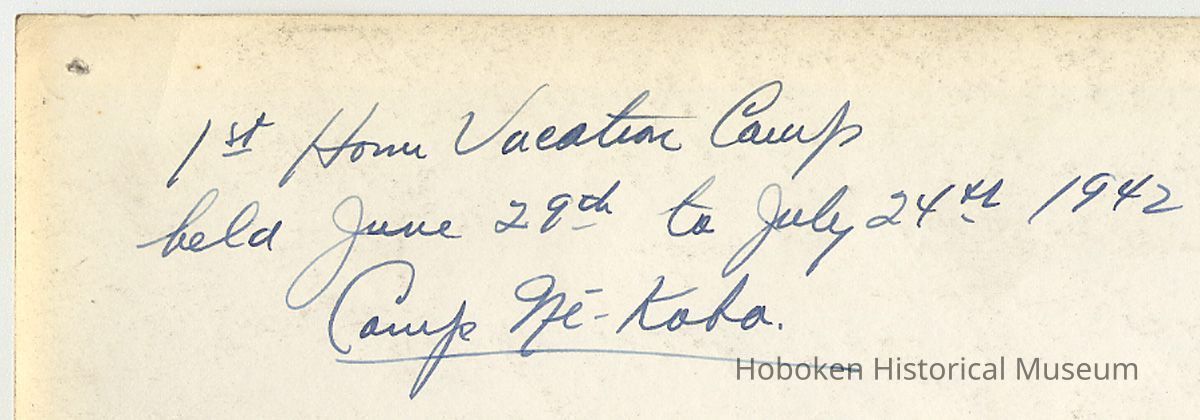 1st Home Vacation Camp
held June 29th to July 24th 1942
Camp Nē-Koba.
Hoboken Historical Museum